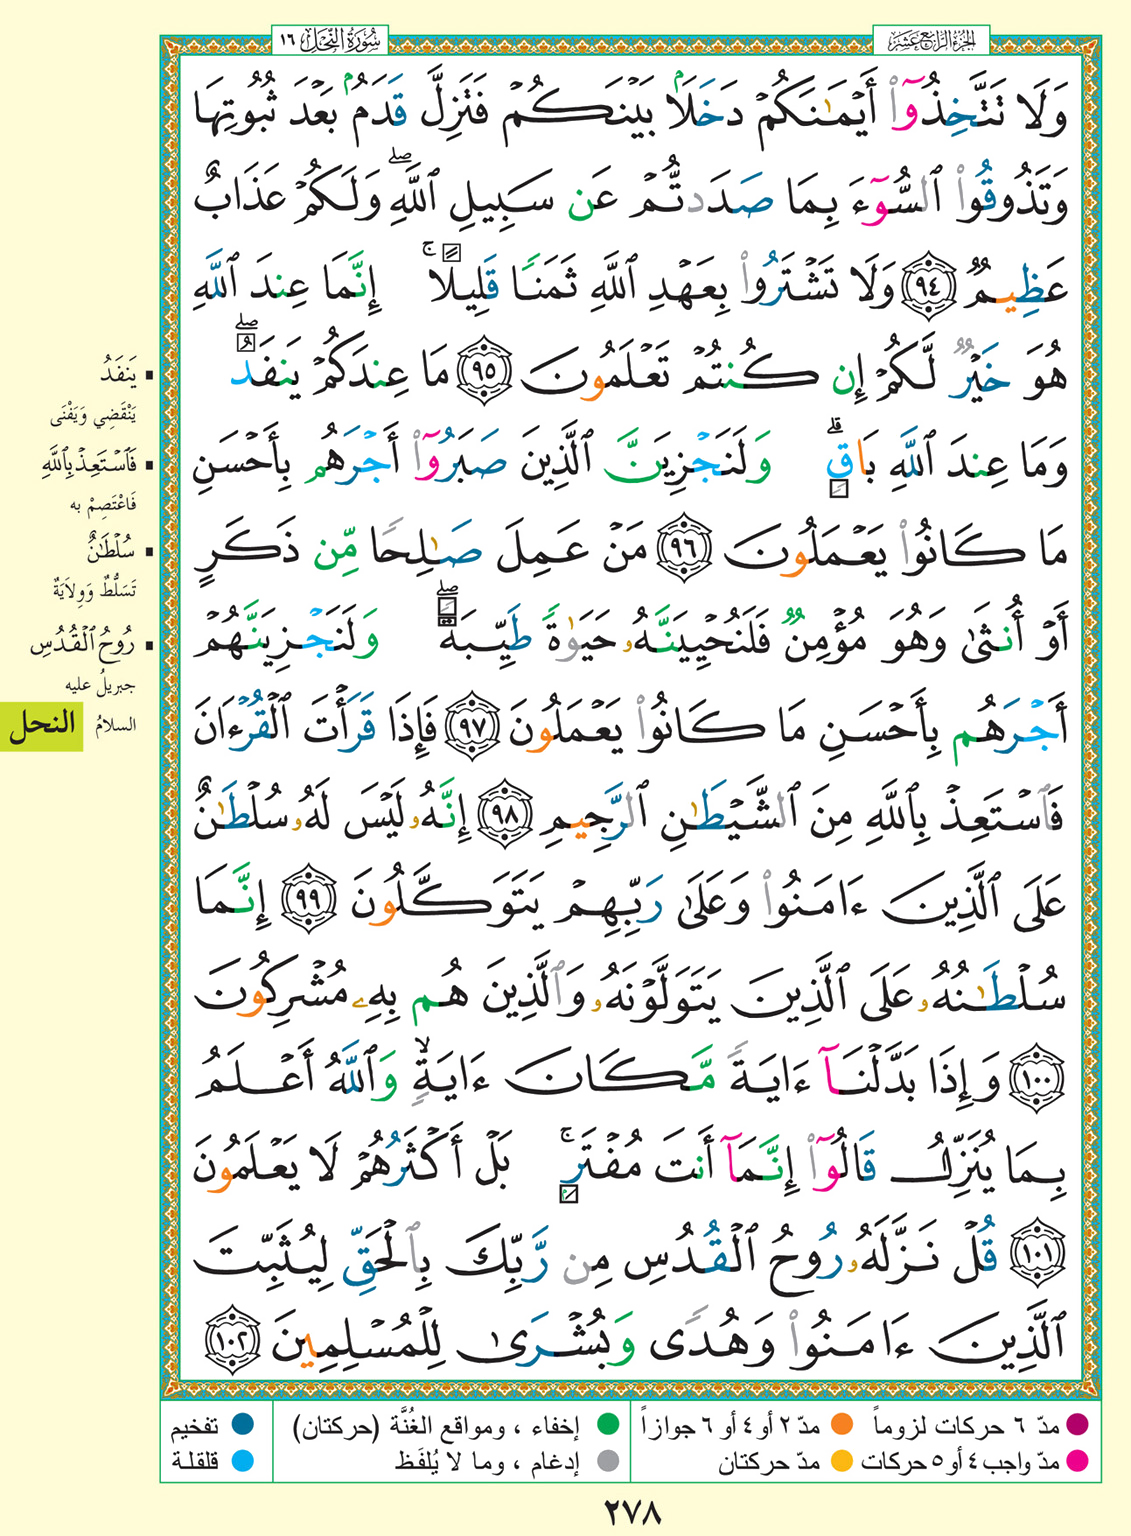 الجزء الرابع عشر
سُورَةُ النَّحْلِ ١٦
وَلَا تَتَّخِذُوٓا۟ أَيْمَـٰنَكُمْ دَخَلًۢا بَيْنَكُمْ فَتَزِلَّ قَدَمٌۢ بَعْدَ ثُبُوتِهَا
وَتَذُوقُوا۟ ٱلسُّوٓءَ بِمَا صَدَدتُّمْ عَن سَبِيلِ ٱللَّهِ ۖ وَلَكُمْ عَذَابٌ
عَظِيمٌ ٩٤ وَلَا تَشْتَرُوا۟ بِعَهْدِ ٱللَّهِ ثَمَنًا قَلِيلًا ۚ إِنَّمَا عِندَ ٱللَّهِ
هُوَ خَيْرٌ لَّكُمْ إِن كُنتُمْ تَعْلَمُونَ ٩٥ مَا عِندَكُمْ يَنفَدُ ۖ
وَمَا عِندَ ٱللَّهِ بَاقٍ ۗ وَلَنَجْزِيَنَّ ٱلَّذِينَ صَبَرُوٓا۟ أَجْرَهُم بِأَحْسَنِ
مَا كَانُوا۟ يَعْمَلُونَ ٩٦ مَنْ عَمِلَ صَـٰلِحًا مِّن ذَكَرٍ
أَوْ أُنثَىٰ وَهُوَ مُؤْمِنٌ فَلَنُحْيِيَنَّهُۥ حَيَوٰةً طَيِّبَةً ۖ وَلَنَجْزِيَنَّهُمْ
أَجْرَهُم بِأَحْسَنِ مَا كَانُوا۟ يَعْمَلُونَ ٩٧ فَإِذَا قَرَأْتَ ٱلْقُرْءَانَ
فَٱسْتَعِذْ بِٱللَّهِ مِنَ ٱلشَّيْطَـٰنِ ٱلرَّجِيمِ ٩٨ إِنَّهُۥ لَيْسَ لَهُۥ سُلْطَـٰنٌ
عَلَى ٱلَّذِينَ ءَامَنُوا۟ وَعَلَىٰ رَبِّهِمْ يَتَوَكَّلُونَ ٩٩ إِنَّمَا
سُلْطَـٰنُهُۥ عَلَى ٱلَّذِينَ يَتَوَلَّوْنَهُۥ وَٱلَّذِينَ هُم بِهِۦ مُشْرِكُونَ
١٠٠ وَإِذَا بَدَّلْنَآ ءَايَةً مَّكَانَ ءَايَةٍ ۙ وَٱللَّهُ أَعْلَمُ
بِمَا يُنَزِّلُ قَالُوٓا۟ إِنَّمَآ أَنتَ مُفْتَرٍۭ ۚ بَلْ أَكْثَرُهُمْ لَا يَعْلَمُونَ
١٠١ قُلْ نَزَّلَهُۥ رُوحُ ٱلْقُدُسِ مِن رَّبِّكَ بِٱلْحَقِّ لِيُثَبِّتَ
ٱلَّذِينَ ءَامَنُوا۟ وَهُدًى وَبُشْرَىٰ لِلْمُسْلِمِينَ ١٠٢
▪ يَنفَدُ
يَنْقَضِي وَيَفْنَى
▪ فَٱسْتَعِذْ بِٱللَّهِ
فَاعْتَصِمْ به
▪ سُلْطَـٰنٌ
تَسَلُّطٌ وَوِلَايَةٌ
▪ رُوحُ ٱلْقُدُسِ
جبريلُ عليه
السلامُ
النحل
مدّ ٦ حركات لزوماً مدّ ٢ أو ٤ أو ٦ جوازاً
مدّ واجب ٤ أو ٥ حركات مدّ حركتان
إخفاء ، ومواقع الغُنَّة (حركتان)
إدغام ، وما لا يُلفَظ
تفخيم
قلقلة
٢٧٨